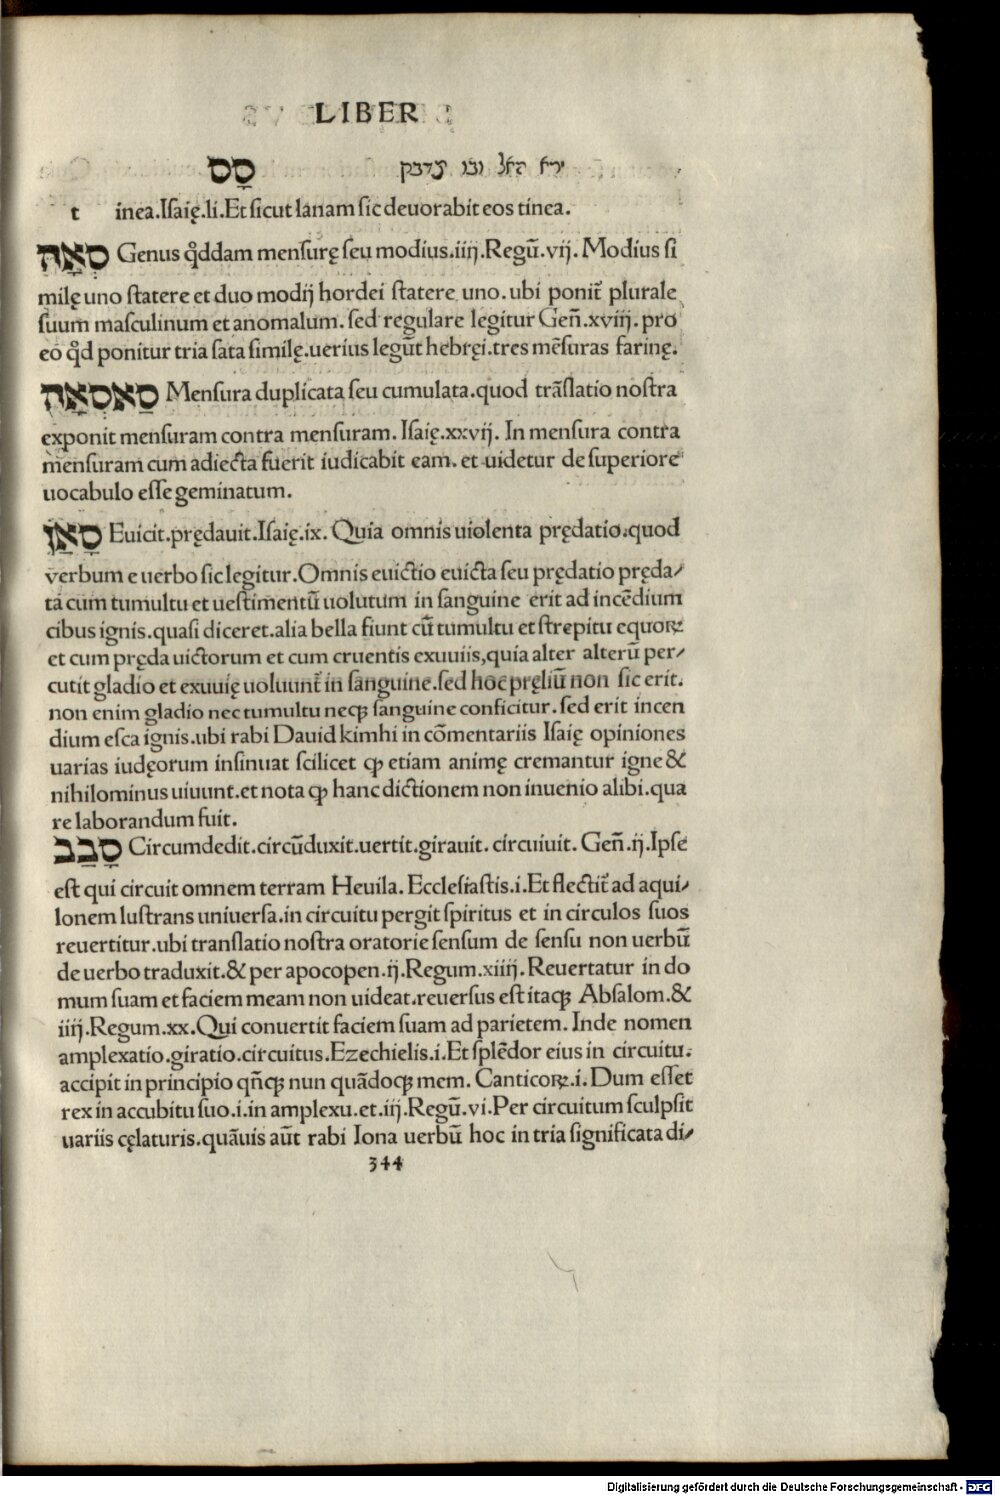 LIBER
סָס
tinea.Iſaię.li.Et ſicut lanam ſic deuorabit eos tinea.
סְאָה Genus qđdam menſurę ſeu modius.iiij.Regū.vij. Modius ſi
milę uno ſtatere et duo modij hordei ſtatere uno.ubi ponit᷑ plurale
ſuum maſculinum et anomalum.ſed regulare legitur Geñ.xviij.pro
eo qđ ponitur tria ſata ſimilę.uerius legūt hebręi.tres mēſuras farinę.
סַאסְאָה Menſura duplicata ſeu cumulata.quod trāſlatio noſtra
exponit menſuram contra menſuram. Iſaię.xxvij. In menſura contra
menſuram cum adiecta fuerit iudicabit eam.et uidetur de ſuperiore
uocabulo eſſe geminatum.
סָאַן Euicit.prędauit.Iſaię.ix. Quia omnis uiolenta prędatio.quod
verbum e uerbo ſic legitur.Omnis euictio euicta ſeu prędatio pręda⸗
ta cum tumultu et ueſtimentū uolutum in ſanguine erit ad incēdium
cibus ignis.quaſi diceret.alia bella fiunt cū tumultu et ſtrepitu equoꝝ
et cum pręda uictorum et cum cruentis exuuiis,quia alter alterū per⸗
cutit gladio et exuuię uoluunt᷑ in ſanguine.ſed hoc pręliū non ſic erit.
non enim gladio nec tumultu neqꝫ ſanguine conficitur.ſed erit incen
dium eſca ignis.ubi rabi Dauid kimhi in cōmentariis Iſaię opiniones
uarias iudęorum inſinuat ſcilicet ꝙ etiam animę cremantur igne &
nihilominus uiuunt.et nota ꝙ hanc dictionem non inuenio alibi.qua
re laborandum fuit.
סָבַב Circumdedit.circūduxit.uertit.girauit.circuiuit. Geñ.ij.Ipſe
eſt qui circuit omnem terram Heuila. Eccleſiaſtis.i.Et flectit᷑ ad aqui⸗
lonem luſtrans uniuerſa.in circuitu pergit ſpiritus et in circulos ſuos
reuertitur.ubi tranſlatio noſtra oratorie ſenſum de ſenſu non uerbū
de uerbo traduxit.& per apocopen.ij.Regum.xiiij.Reuertatur in do
mum ſuam et faciem meam non uideat.reuerſus eſt itaqꝫ Abſalom.&
iiij.Regum.xx.Qui conuertit faciem ſuam ad parietem. Inde nomen
amplexatio.giratio.circuitus.Ezechielis.i.Et ſplēdor eius in circuitu.
accipit in principio qñqꝫ nun quādoqꝫ mem. Canticoꝝ.i.Dum eſſet
rex in accubitu ſuo.i.in amplexu.et.iij.Regū.vi.Per circuitum ſculpſit
uariis cęlaturis.quāuis aūt rabi Iona uerbū hoc in tria ſignificata di⸗
344
Digitalisierung gefördert durch die Deutsche Forschungsgemeinschaft - DFG